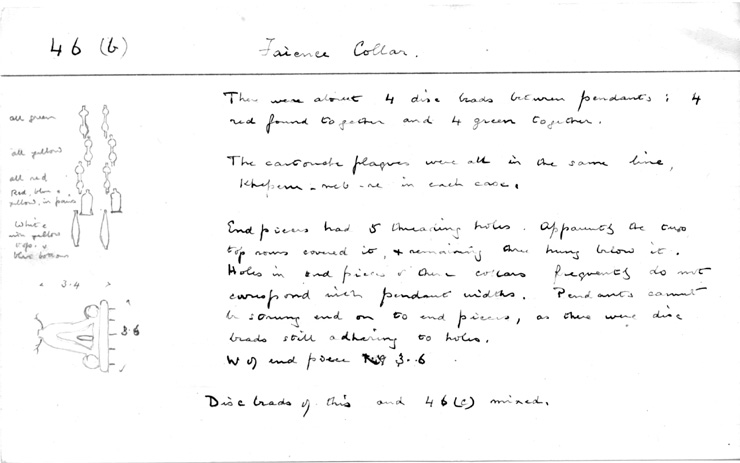 46 (b)
Faience Collar.
There were about 4 disc beads between pendants: 4
red found together and 4 green together.
The cartouche plaques were all in the same line,
Kheperu-neb-re in each case.
End pieces had 5 threading holes. Apparently the two
top rows covered it, & remaining three hung below it.
Holes in end pieces of these collars frequently do not
correspond with pendant widths. Pendants cannot
be strung end on to end pieces, as there were disc
beads still adhering to holes.
W of end piece 3.6
Disc beads of this and 46(c) mixed.
all green
all yellow
all red
Red, blue &
yellow, in pairs
White
with yellow
tops &
blue bottoms
3.4
3.6